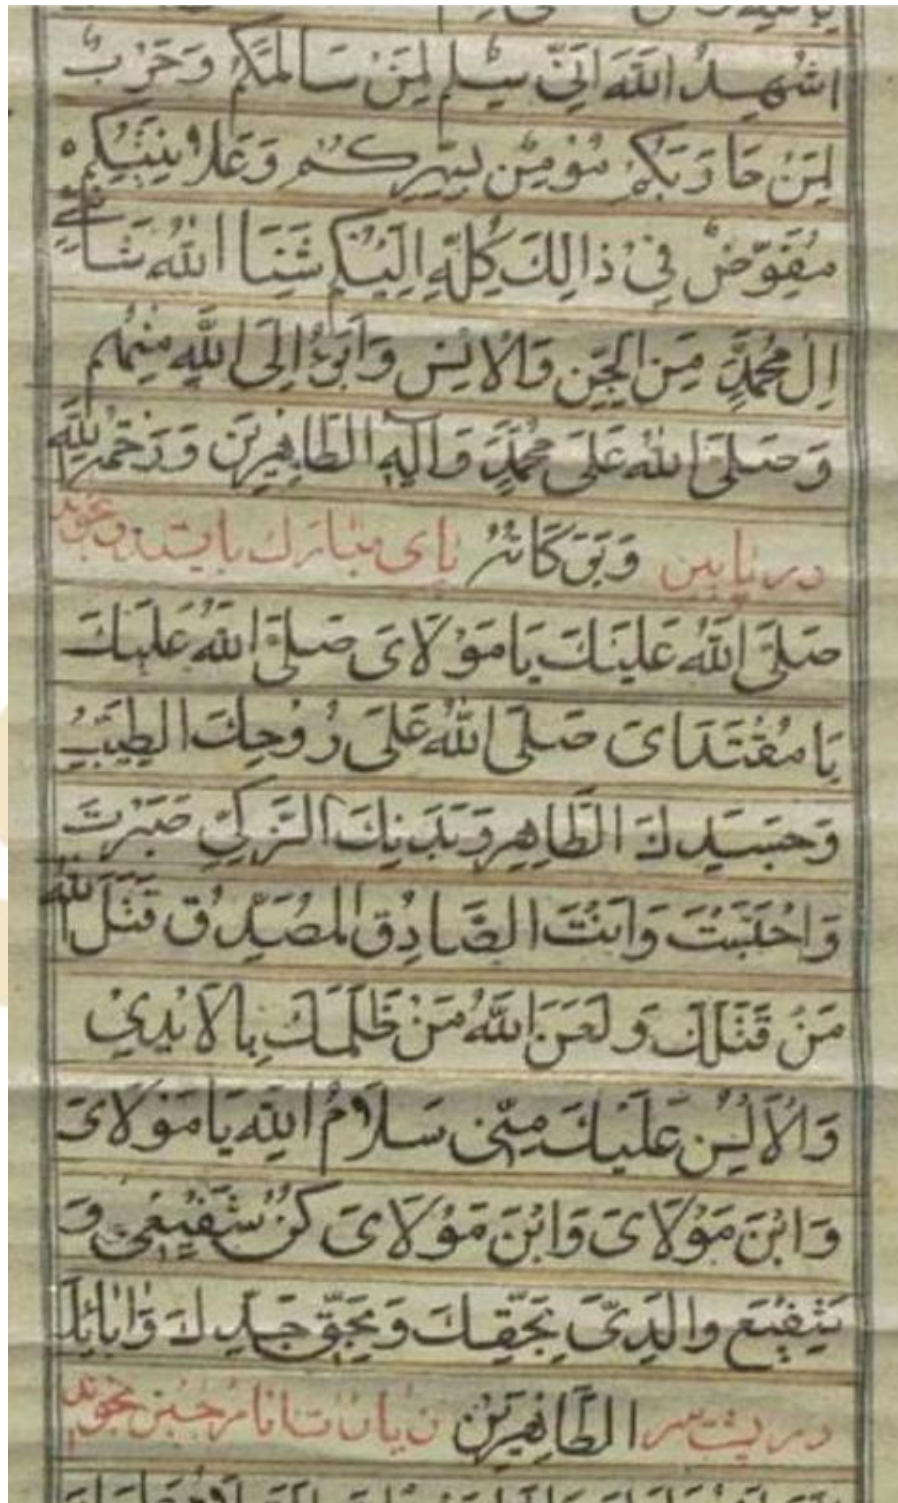 اشهد الله انی سلم لمن سالمکم وحرب
لمن حاربکم مؤمن بسرکم وعلانیتکم
مفوض فی ذالک کله الیکم
ال محمد من الجن والانس وابرء الی الله منهم
وصلی الله علی محمد وآله الطاهرین ورحمة الله
در پایین وبرکاته پای مبارک بایستد وبخواند
صلی الله علیک یا مولای صلی الله علیک
یا مقتدای صلی الله علی روحک الطیب
وجسدک الطاهر وبدنک الزکی صبرت
واحتسبت وانت الصادق المصدق قتل الله
من قتلک ولعن الله من ظلمک بالایدی
والالسن علیک منی سلام الله یا مولای
وابن مولای وابن مولای کن شفیعی و
شفیع والدی بحقک وبحق جدک وابائک
در پشت سر الطاهرین بخواند